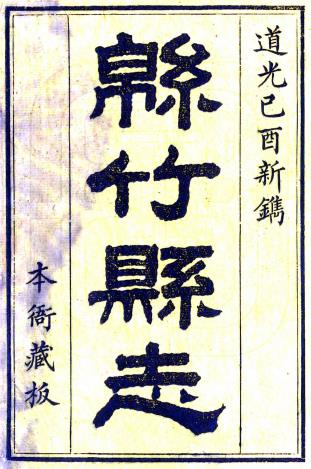 道光己酉新鐫
緜竹縣志
本衙藏板